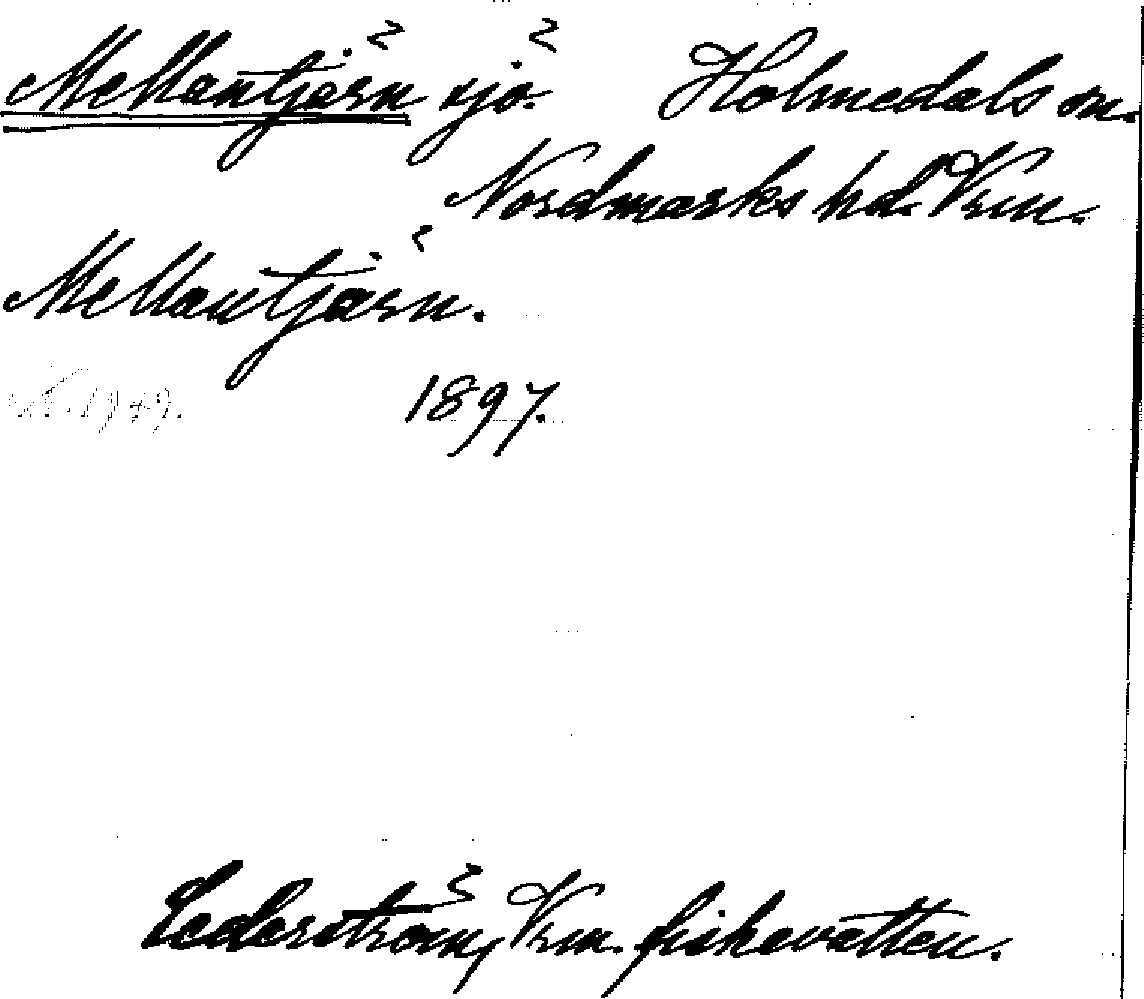 Mellantjärn sjö. Holmedals sn.
Nordmarks hd. Vrm.
Mellantjärn.
1897.
Cederström, Vrm. fiskevatten.